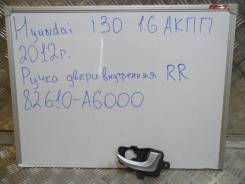 Hyundai i30 1.6 АКПП
2012г.
Ручка двери внутренняя RR
82610-A6000